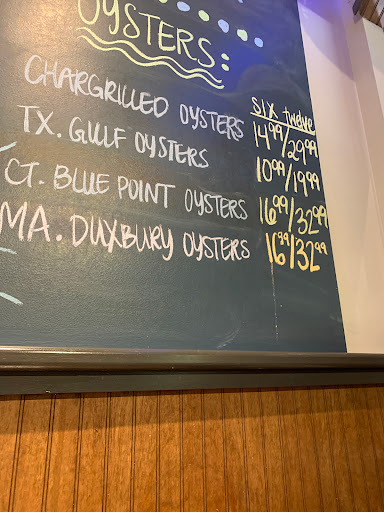 OYSTERS:
six twelve
CHARGRILLED OYSTERS 14.99/29.99
TX. GULF OYSTERS 10.99/19.99
CT. BLUE POINT OYSTERS 16.99/32.99
MA. DUXBURY OYSTERS 16.99/32.99